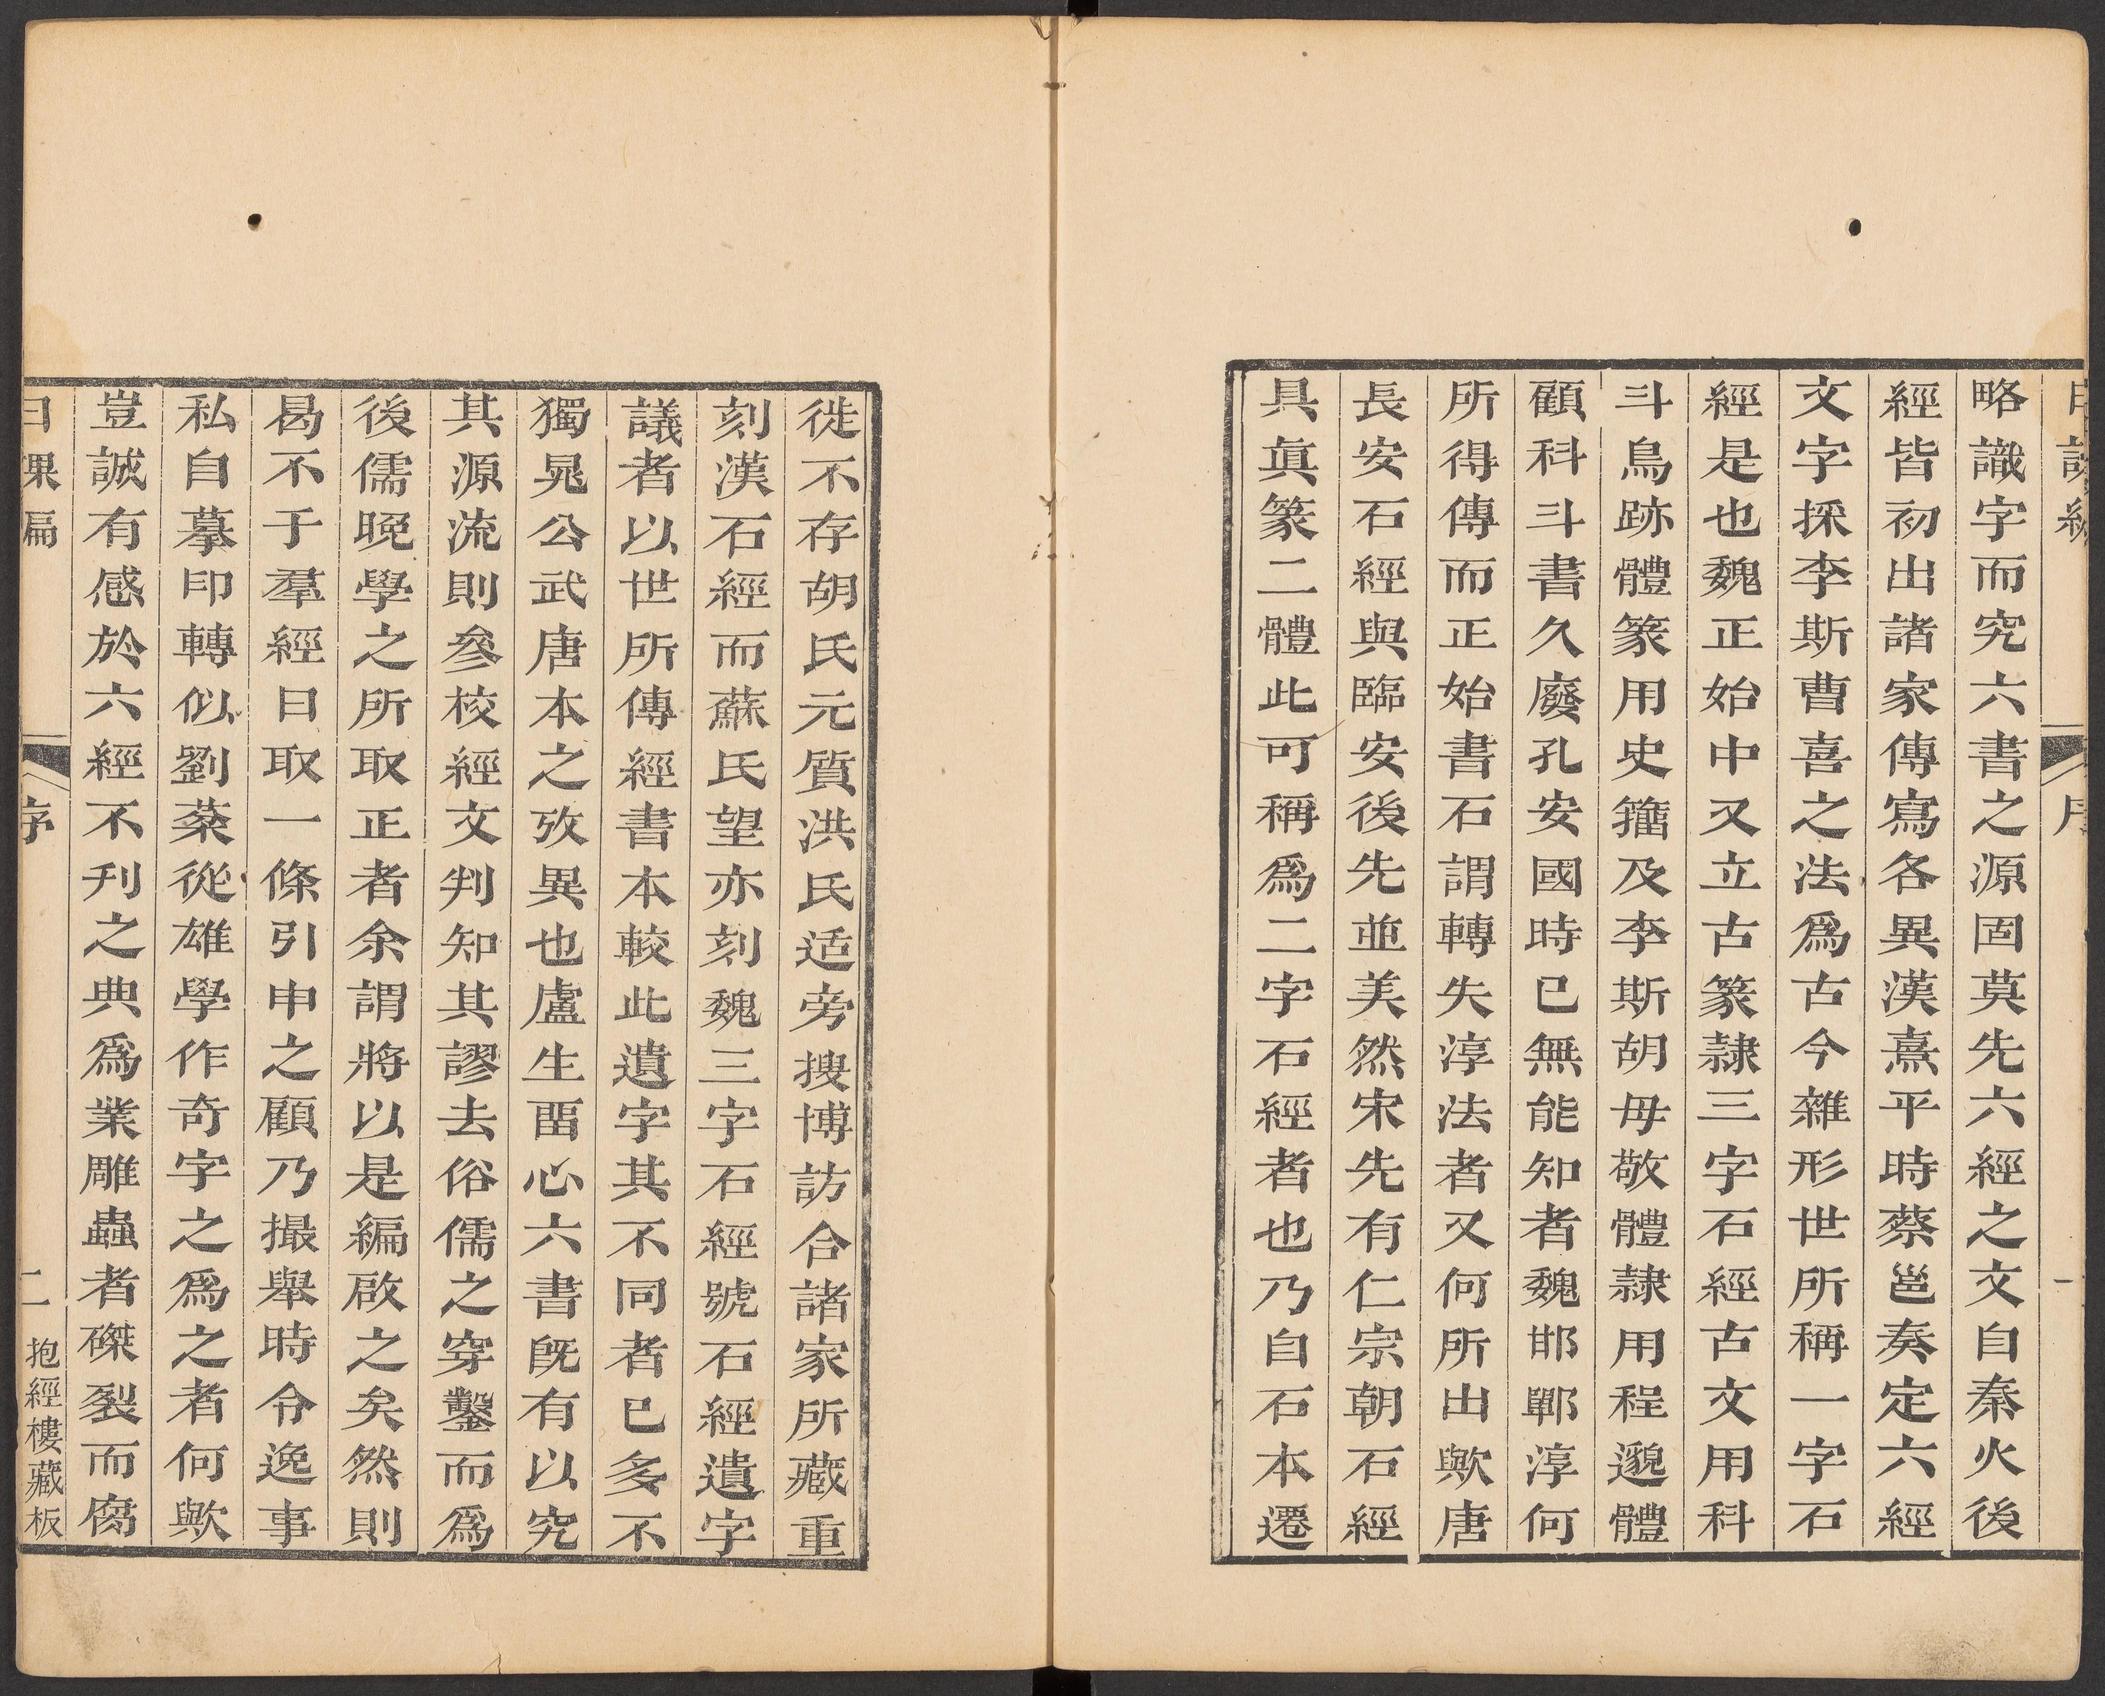 略識字而究六書之源固莫先六經之文自秦火後
經皆初出諸家傳寫各異漢熹平時蔡邕奏定六經
文字採李斯曹喜之法爲古今雜形世所稱一字石
經是也魏正始中又立古篆隷三字石經古文用科
斗鳥跡體篆用史籀及李斯胡毋敬體隷用程邈體
顧科斗書久廢孔安國時已無能知者魏邯鄲淳何
所得傳而正始書石謂轉失淳法者又何所出歟唐
長安石經與臨安後先並美然宋先有仁宗朝石經
具眞篆二體此可稱爲二字石經者也乃自石本遷
徙不存胡氏元質洪氏适旁搜博訪合諸家所藏重
刻漢石經而蘇氏望亦刻魏三字石經號石經遺字
議者以世所傳經書本較此遺字其不同者已多不
獨晁公武唐本之攷異也盧生畱心六書旣有以究
其源流則參校經文判知其謬去俗儒之穿鑿而爲
後儒晚學之所取正者余謂將以是編啟之矣然則
曷不于羣經日取一條引申之顧乃撮舉時令逸事
私自摹印轉似劉棻從雄學作奇字之爲之者何歟
豈誠有感於六經不刋之典爲業雕蟲者磔裂而腐
日課編
序
二
抱經樓藏板